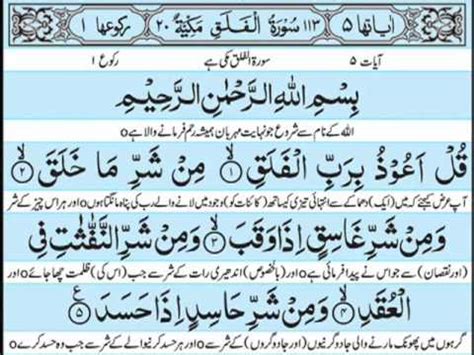 اٰیاتها ۵ ۱۱۳ سُوْرَةُ الْفَلَقِ مَكِّیَّةٌ ۲۰ رکوعها ۱
آیات ۵ سورۃ الفلق مکی ہے رکوع ۱
بِسْمِ اللّٰهِ الرَّحْمٰنِ الرَّحِیْمِ
اللہ کے نام سے شروع جو نہایت مہربان ہمیشہ رحم فرمانے والا ہے o
قُلْ اَعُوْذُ بِرَبِّ الْفَلَقِ ۱ مِنْ شَرِّ مَا خَلَقَ ۲
آپ عرض کیجئے کہ میں (ایک) دھماکے سے انتہائی تیزی کیساتھ (کائنات کو) وجود میں لانے والے رب کی پناہ مانگتا ہوں o اور ہر اس چیز کے شر
وَ مِنْ شَرِّ غَاسِقٍ اِذَا وَقَبَ ۳ وَ مِنْ شَرِّ النَّفّٰثٰتِ فِی
(اور نقصان) سے جو اس نے پیدا فرمائی ہے o اور (بالخصوص) اندھیری رات کے شر سے جب (اس کی) ظلمت چھا جائے o اور
الْعُقَدِ ۴ وَ مِنْ شَرِّ حَاسِدٍ اِذَا حَسَدَ ۵ ع
گرہوں میں پھونک مارنے والی جادوگرنیوں (اور جادوگروں) کے شر سے o اور ہر حسد کرنیوالے کے شر سے جب وہ حسد کرے o